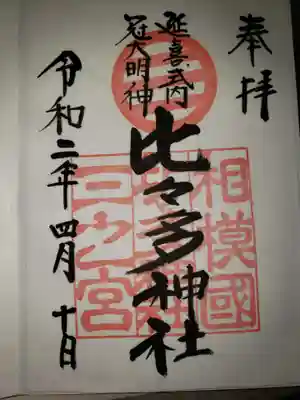 奉拝
延喜式内
冠大明神
比々多神社
令和二年四月十日
相模國
三之宮